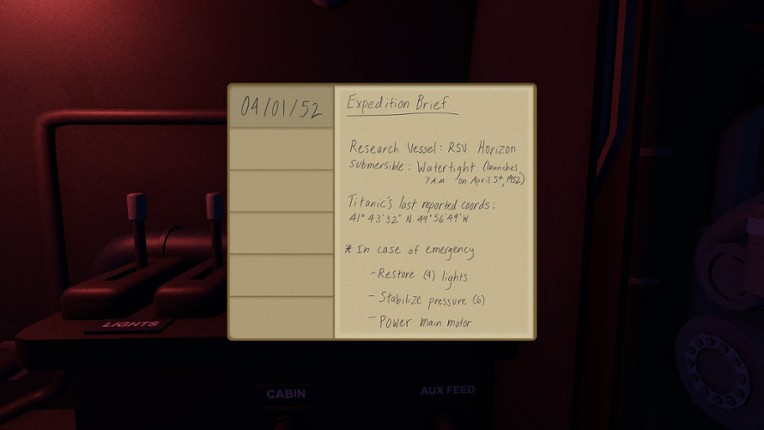 04/01/52
Expedition Brief
Research Vessel: RSV Horizon
Submersible: Watertight (launches
7AM on April 5th, 1952)
Titanic's last reported coords:
41° 43'32" N. 49° 56'49" W
* In case of emergency
- Restore (4) lights
- Stabilize pressure (6)
- Power main motor
LIGHTS
CABIN
AUX FEED